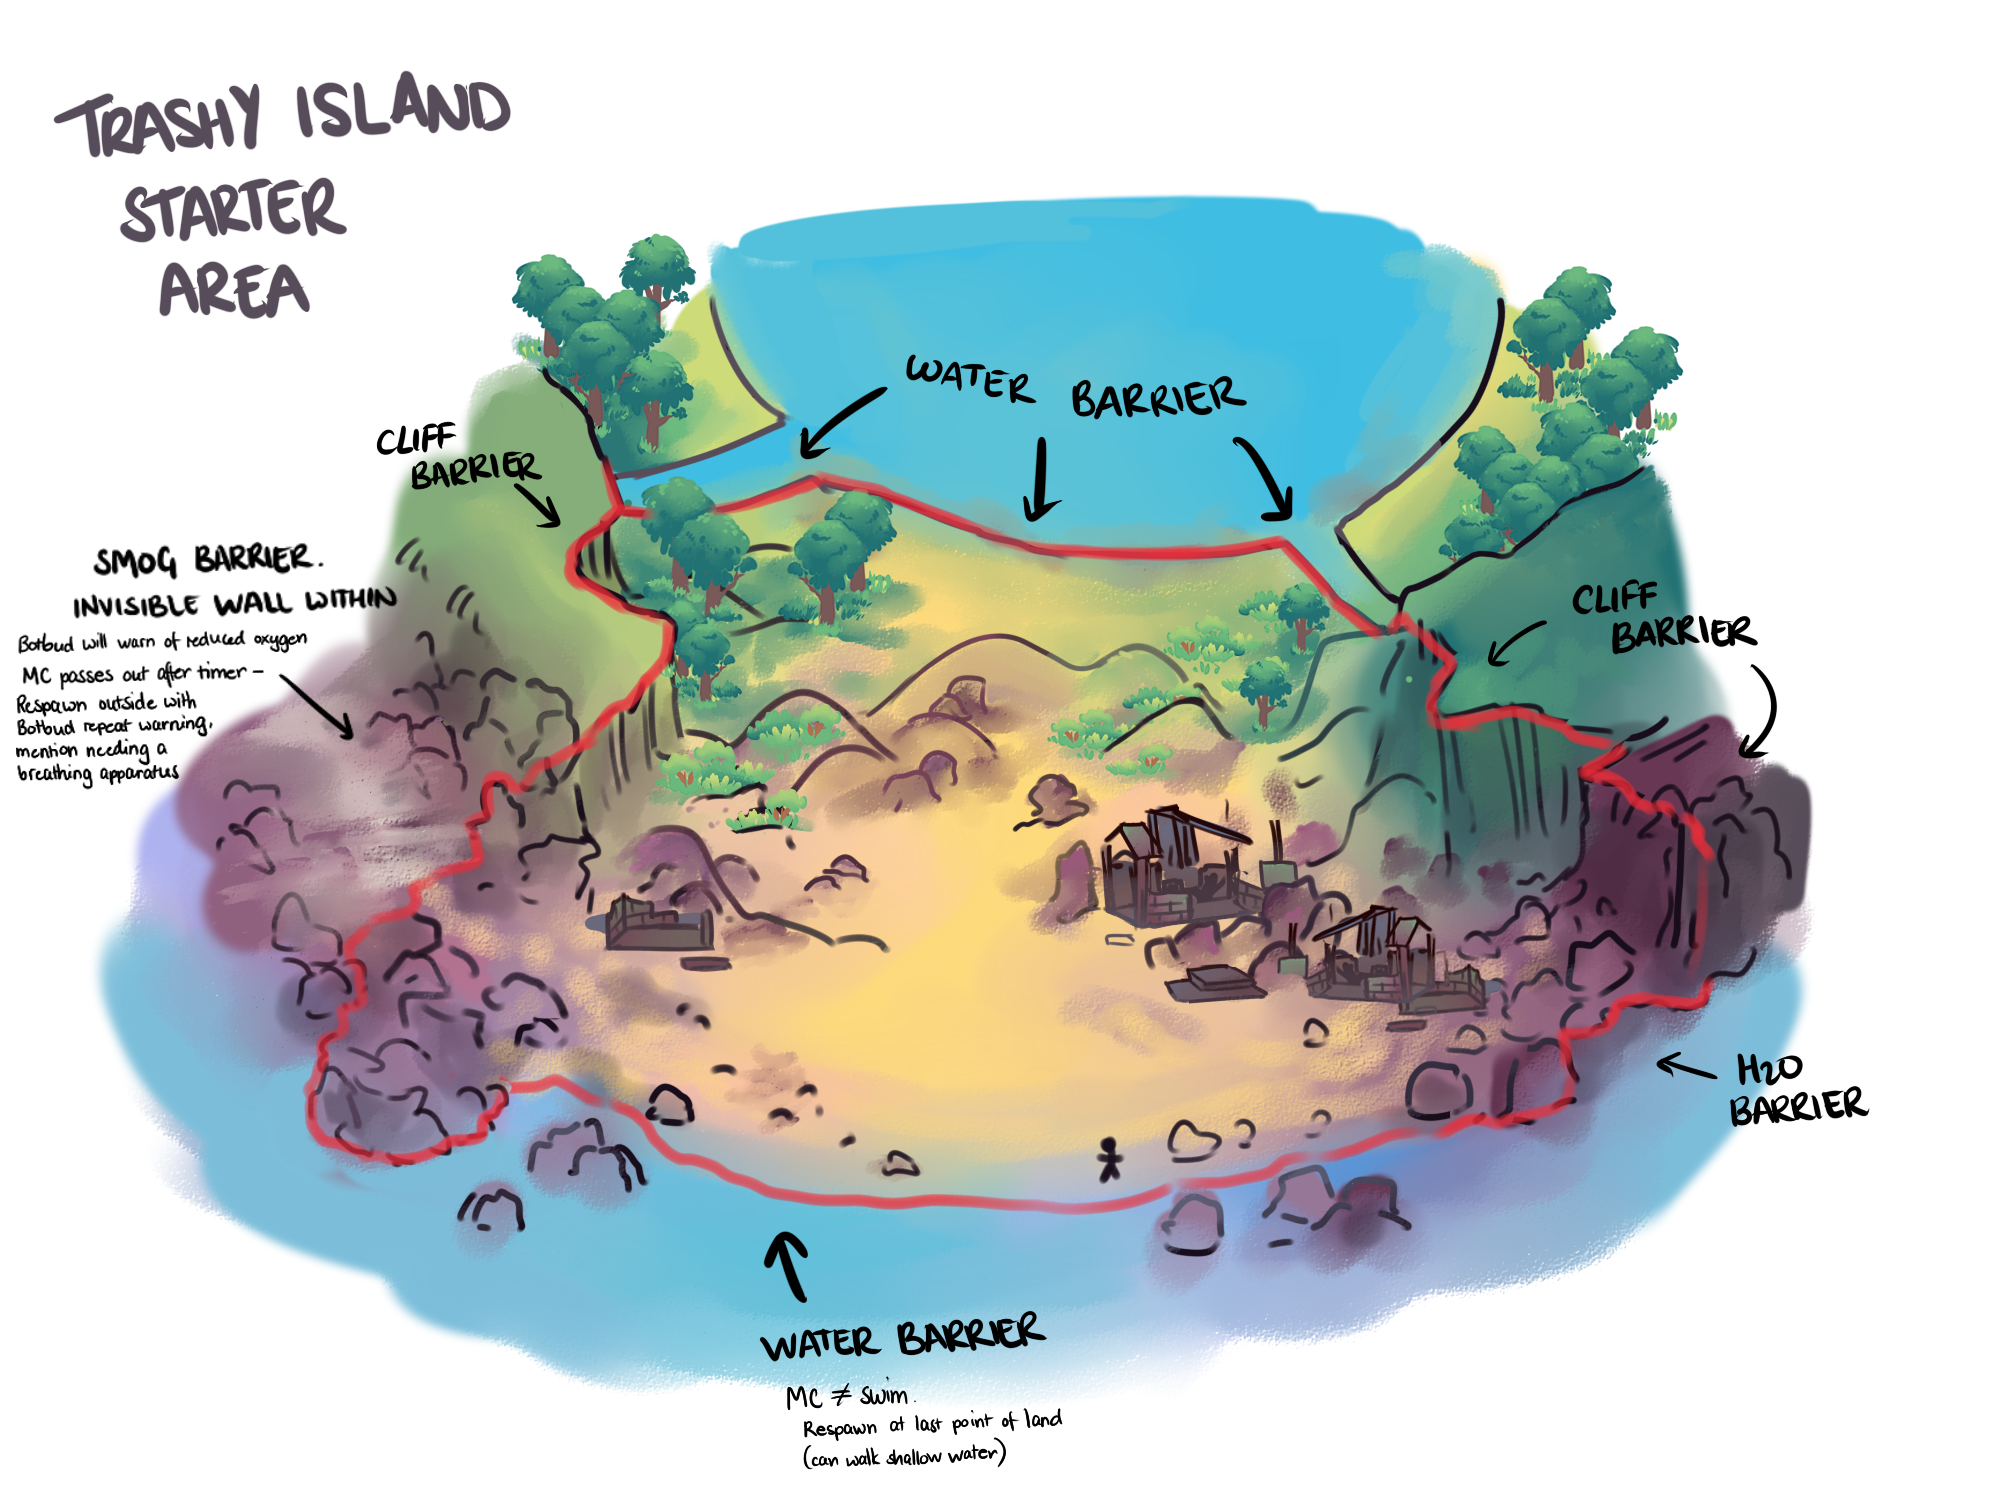 TRASHY ISLAND
STARTER
AREA
WATER BARRIER
CLIFF
BARRIER
SMOG BARRIER.
INVISIBLE WALL WITHIN
Botbud will warn of reduced oxygen
MC passes out after timer –
Respawn outside with
Botbud repeat warning,
mention needing a
breathing apparatus
CLIFF
BARRIER
H2O
BARRIER
WATER BARRIER
MC ≠ swim.
Respawn at last point of land
(can walk shallow water)